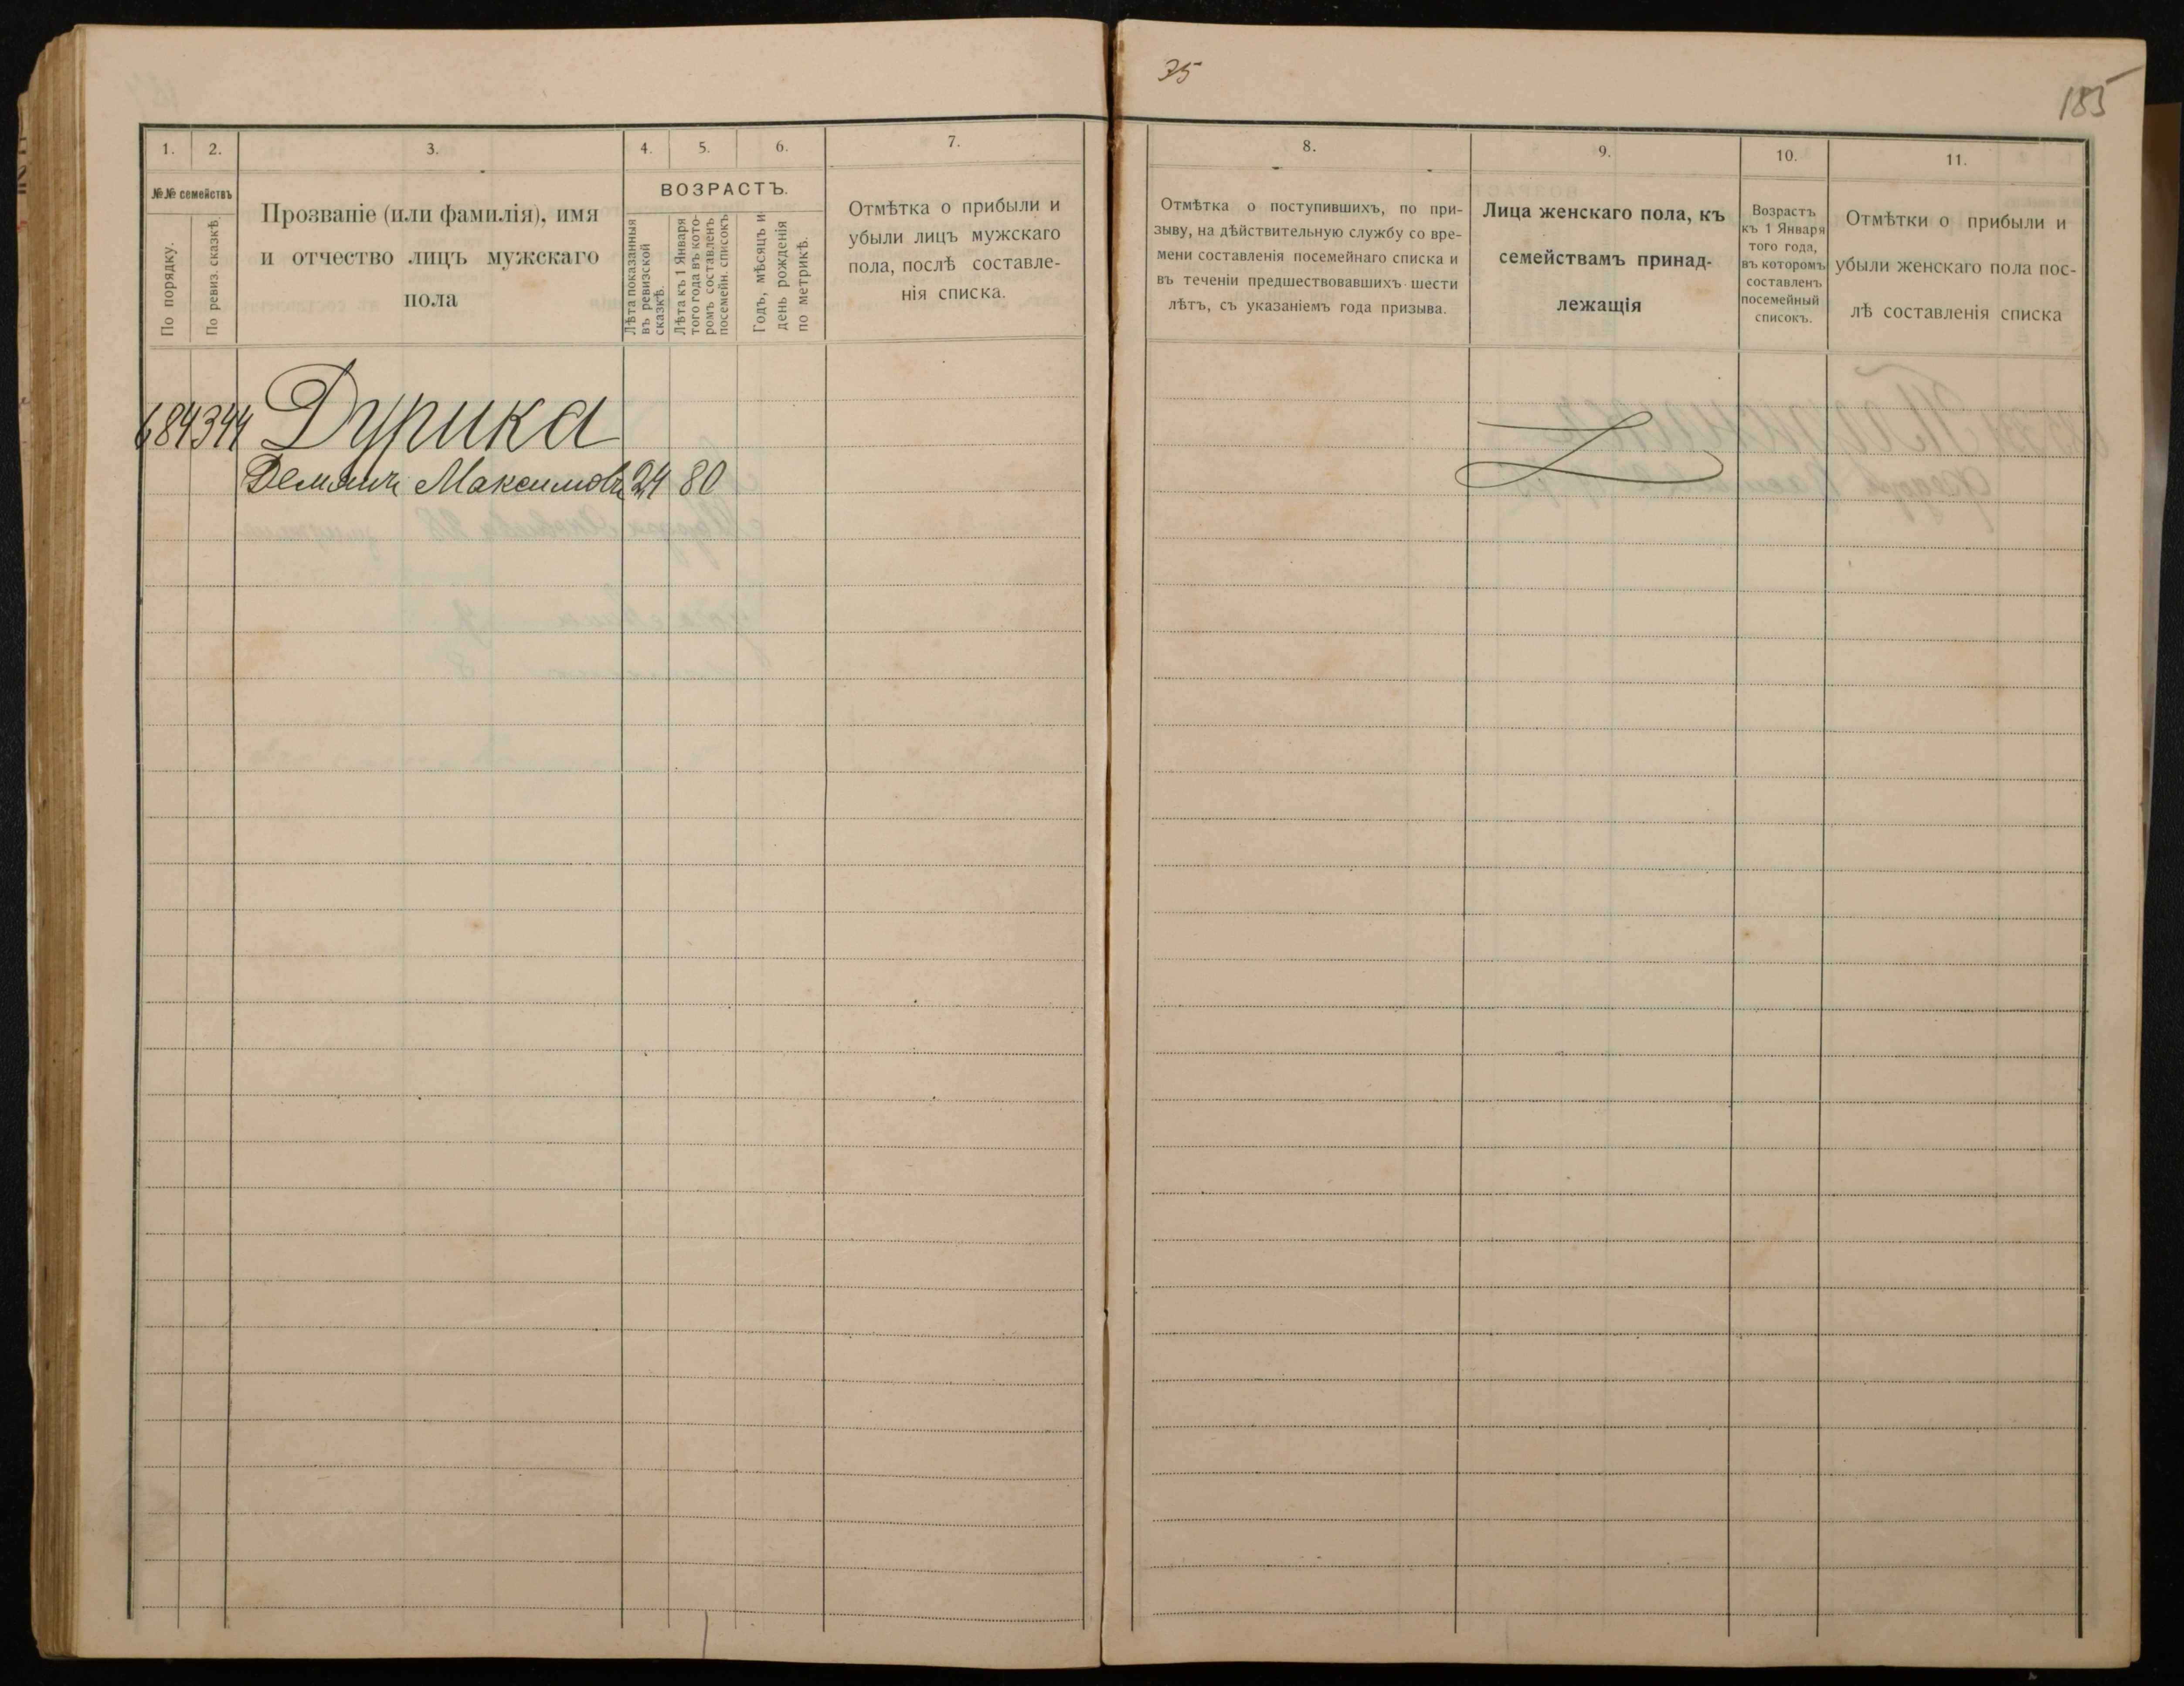 35
185
1. 2. 3. 4. 5. 6. 7.
№№ семействъ
По порядку.
По ревиз. сказкѣ.
Прозваніе (или фамилія), имя
и отчество лицъ мужскаго
пола
ВОЗРАСТЪ.
Лѣта показанныя
въ ревизской
сказкѣ.
Лѣта къ 1 Января
того года въ кото-
ромъ составленъ
посемейн. списокъ
Годъ, мѣсяцъ и
день рожденія
по метрикѣ.
Отмѣтка о прибыли и
убыли лицъ мужскаго
пола, послѣ составле-
нія списка.
8. 9. 10. 11.
Отмѣтка о поступившихъ, по при-
зыву, на дѣйствительную службу со вре-
мени составленія посемейнаго списка и
въ теченіи предшествовавшихъ шести
лѣтъ, съ указаніемъ года призыва.
Лица женскаго пола, къ
семействамъ принад-
лежащія
Возрастъ
къ 1 Января
того года,
въ которомъ
составленъ
посемейный
списокъ.
Отмѣтки о прибыли и
убыли женскаго пола пос-
лѣ составленія списка
684 344 Дурика
Демянъ Максимовъ 24 80